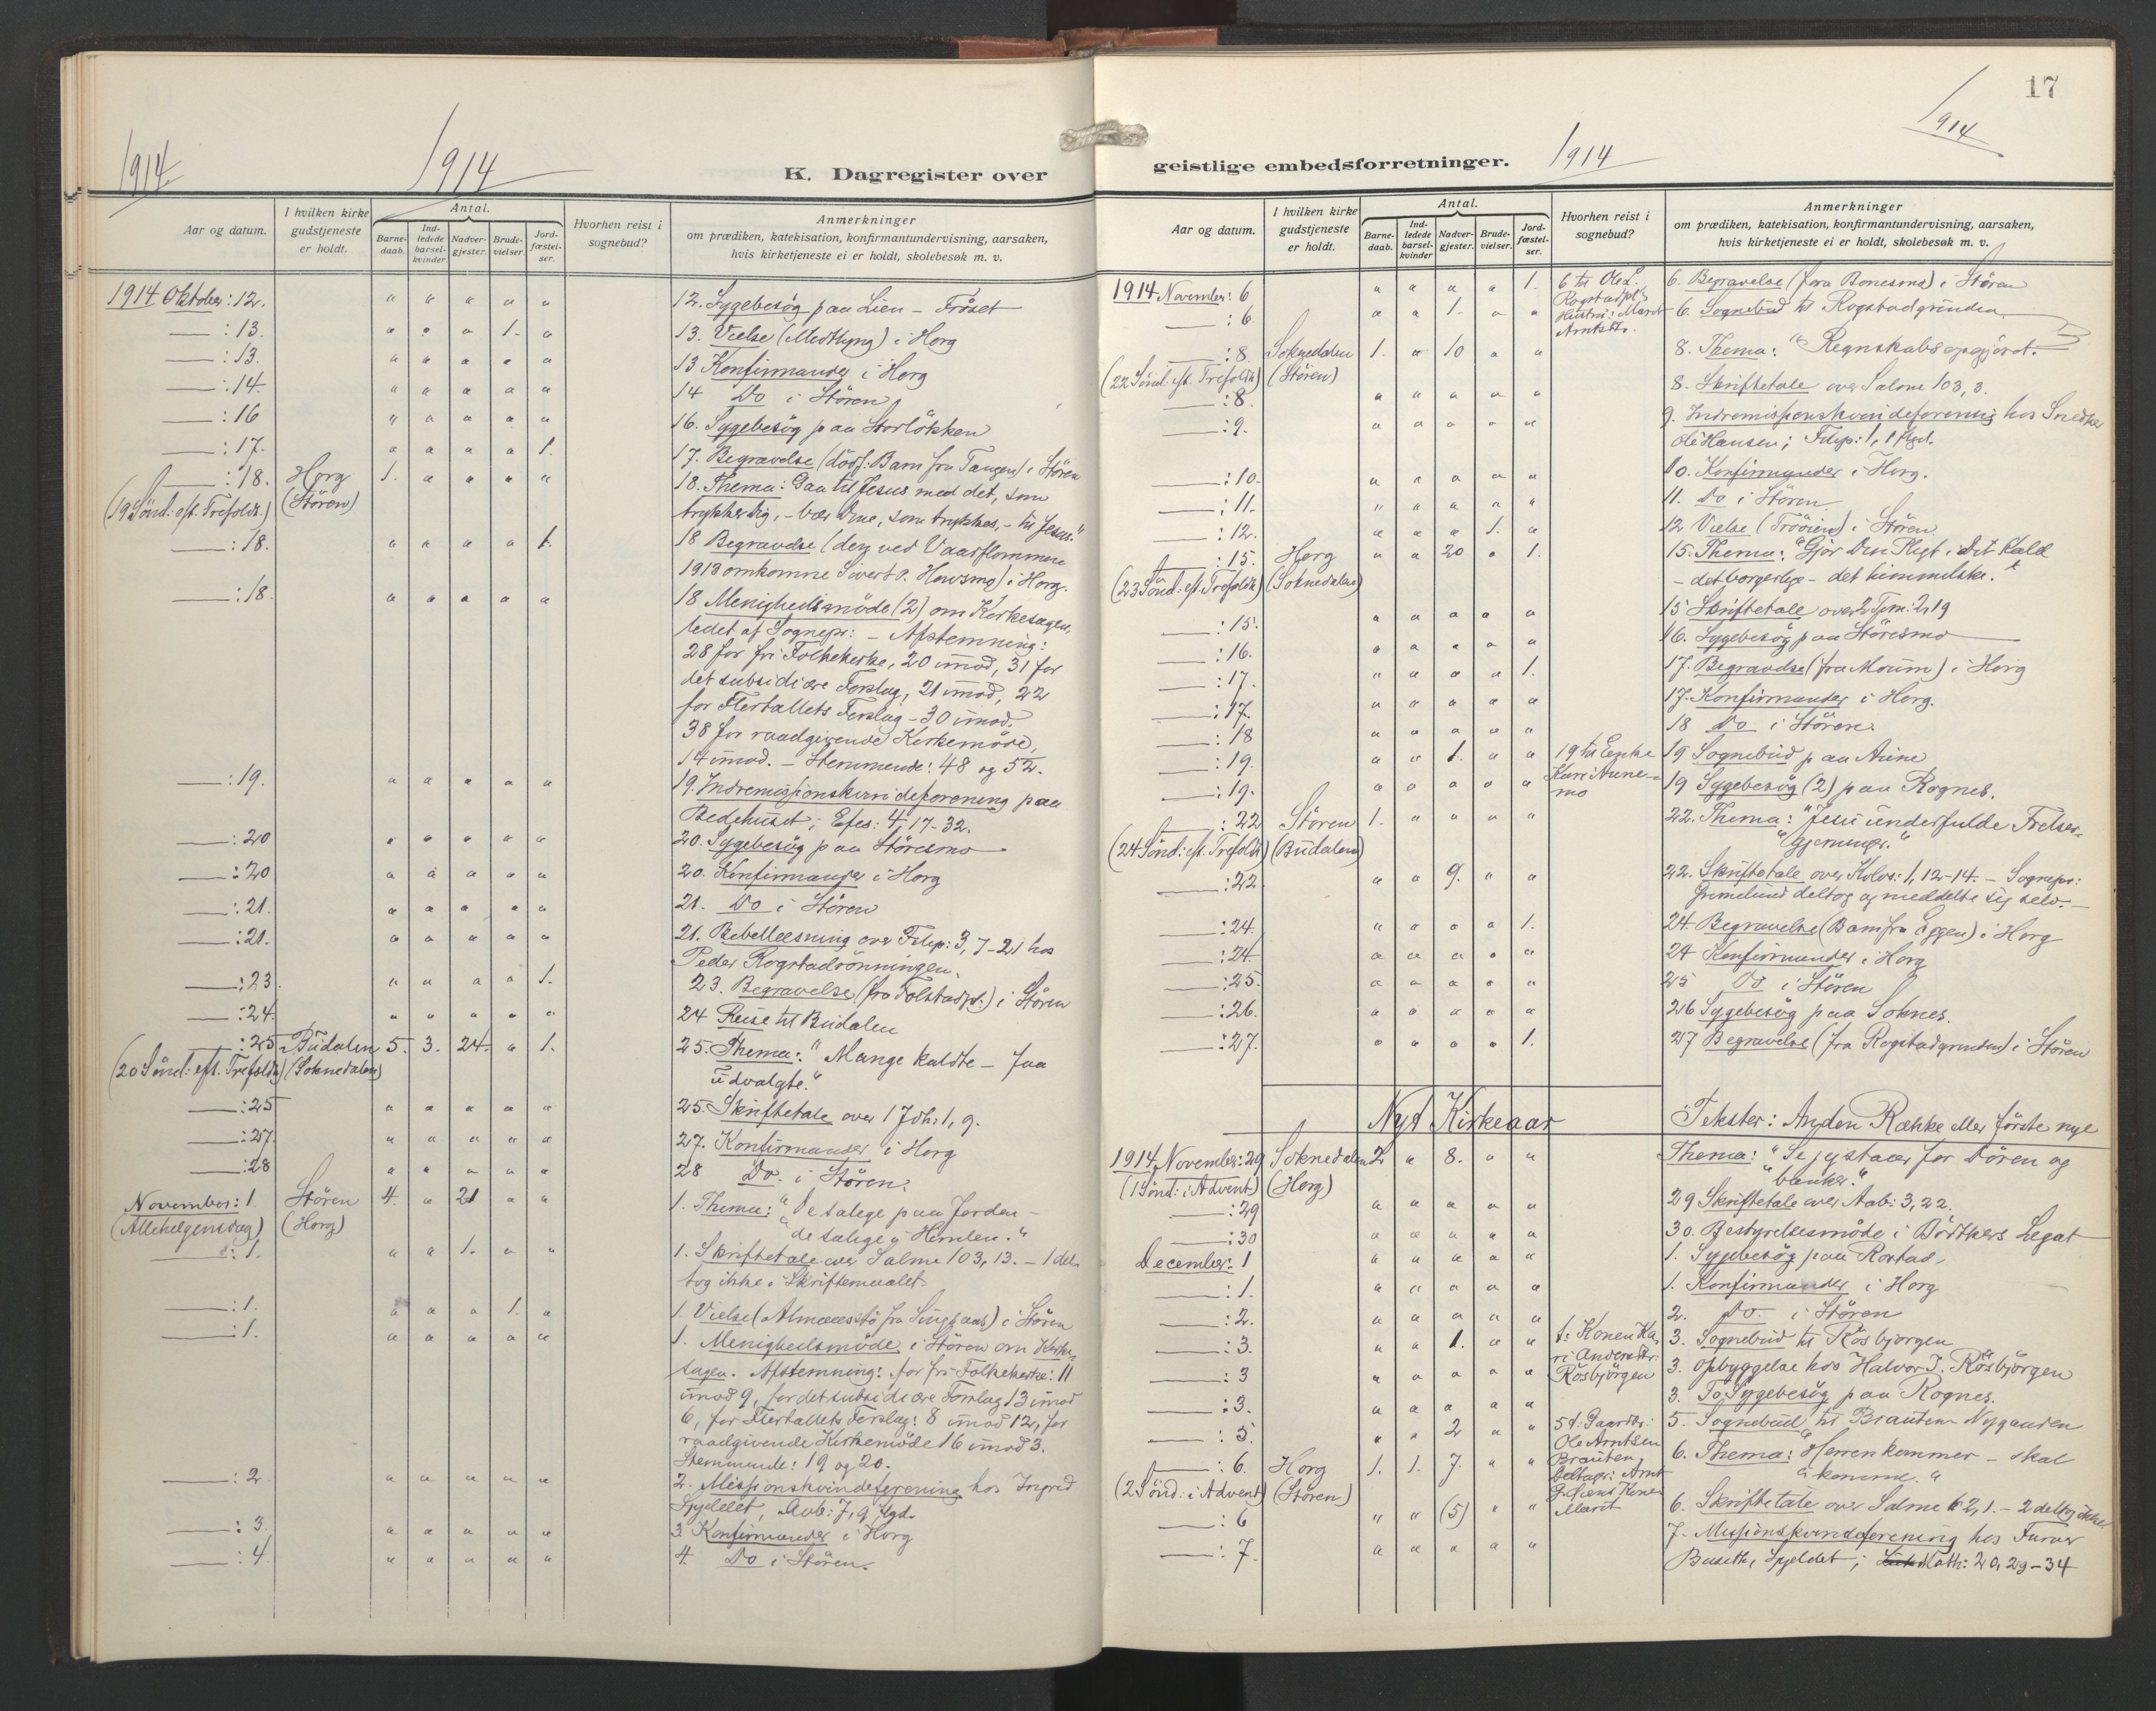 1914
1914
K. Dagregister over
Aar og datum.
I hvilken kirke gudstjeneste er holdt.
Antal.
Barnedaab.
Indledede barselkvinder
Nadvergjester.
Brudevielser.
Jordfæstelser.
Hvorhen reist i sognebud?
Anmerkninger
om prædiken, katekisation, konfirmantundervisning, aarsaken,
hvis kirketjeneste ei er holdt, skolebesøk m. v.
1914 Oktober: 12. " " " " " 12. Sygebesög paa Lien - Fröset
— : 13. " " " 1. " 13. Vielse (Medthyng) i Horg
— : 13. " " " " " 13 Konfirmander i Horg
— : 14. " " " " " 14 Do i Stören
— : 16 " " " " " 16. Sygebesög paa Storløkken
— : 17. " " " " 1. 17. Begravelse (dödf: Barn fra Tangen) i Stören
— : 18. Horg 1. " " " " 18. Thema: Gaa til Jesus med det, som
(19 Sönd: eft. Trefoldh.) (Stören) trykker dig, - bær dine, som trykkes, - til Jesus."
— : 18. " " " " 1. 18 Begravelse (den ved Vaarflommen
1913 omkomne Sivert P. Hovsmo) i Horg.
— : 18. " " " " " 18 Menighedsmöde (2) om Kirkesagen,
ledet af Sognepr: - Afstemning:
28 for fri Folkekirke, 20 imod, 31 for
det subsidiære Forslag, 21 imod, 22
for Flertallets Forslag - 30 imod.
38 for raadgivende Kirkemöde,
14 imod. - Stemmende: 48 og 52.
— : 19. " " " " " 19. Indremissionskvindeforening paa
Bedehuset; Efes: 4, 17-32.
— : 20 " " " " " 20. Sygebesög paa Störesmo
— : 20 " " " " " 20. Konfirmander i Horg
— : 21. " " " " " 21. Do i Stören
— : 21. " " " " " 21. Bibellæsning over Filip: 3, 7-21 hos
Peder Rogstadrönningen.
— : 23. " " " " 1. 23. Begravelse (fra Folstadpl.) i Stören
— : 24. " " " " " 24 Reise til Budalen
— : 25 Budalen 5. 3. 24. " 1. 25. Thema: "Mange kaldte - faa
(20 Sönd: eft. Trefoldh) (Soknedalen) udvalgte."
— : 25 " " " " " 25. Skriftetale over 1 Joh: 1, 9.
— : 27. " " " " " 27. Konfirmander i Horg
— : 28 " " " " " 28 Do. i Stören.
November: 1. Stören 4. " 21 " " 1. Thema: "De salige paa Jorden -
(Allehelgensdag) (Horg) "de salige i Himlen."
— : 1. " " 1. " " 1. Skriftetale over Salme 103, 13. - 1 del-
tog ikke i Skriftemaalet.
— : 1. " " " 1. " 1. Vielse (Almaasstö fra Singsaas) i Stören
— : 1. " " " " " 1. Menighedsmöde i Stören om Kirke-
sagen. Afstemning: for fri Folkekirke: 11
imod 9, for det subsidiære Forslag 13 imod
6, for Flertallets Forslag: 8 imod 12, for
raadgivende Kirkemöde 16 imod 3.
Stemmende: 19 og 20.
— : 2. " " " " " 2. Missionskvindeforening hos Ingrid
Spjeldet, Aab: 7, 9 flgd.
— : 3. " " " " " 3 Konfirmander i Horg
— : 4. " " " " " 4. Do i Stören.
17
1914
1914
geistlige embedsforretninger.
Aar og datum.
I hvilken kirke gudstjeneste er holdt.
Antal.
Barnedaab.
Indledede barselkvinder
Nadvergjester.
Brudevielser.
Jordfæstelser.
Hvorhen reist i sognebud?
Anmerkninger
om prædiken, katekisation, konfirmantundervisning, aarsaken,
hvis kirketjeneste ei er holdt, skolebesøk m. v.
1914 November: 6 " " " " 1. 6 til Ole L. 6. Begravelse (fra Bonesmo) i Stören
— : 6. " " 1. " " Rogstadpl:s Hustru: Marit Arntsdtr. 6. Sognebud til Rogstadgrinden
— : 8. Soknedalen 1. " 10 " " 8. Thema: "Regnskabsopgjöret.
(22 Sönd: eft. Trefoldh) (Stören)
— : 8. " " " " " 8. Skriftetale over Salme 103, 3.
— : 9. " " " " " 9. Indremissionskvindeforening hos Snedker
Ole Hansen; Filip: 1, 1 flgd.
— : 10. " " " " " 10. Konfirmander i Horg.
— : 11. " " " " " 11. Do i Stören
— : 12. " " " 1. " 12 Vielse (Trööien) i Stören
— : 15. Horg " " 20 " 1. 15. Thema: "Gjör Din Pligt i Dit Kald
(23 Sönd: eft. Trefoldh) (Soknedalen) - det borgerlige - det himmelske."
— : 15. " " " " " 15 Skriftetale over 2 Tim: 2, 19
— : 16. " " " " " 16. Sygebesög paa Störesmo
— : 17. " " " " 1. 17. Begravelse (fra Moum) i Horg
— : 17. " " " " " 17. Konfirmander i Horg.
— : 18 " " " " " 18 Do i Stören
— : 19. " " 1. " " 19 til Enke Kari Aune-mo 19 Sognebud paa Aune
— : 19. " " " " " 19 Sygebesög (2) paa Rognes.
— : 22 Stören 1. " " " " 22. Thema: "Jesu underfulde Frelser-
(24 Sönd: eft. Trefoldh) (Budalen) "gjerninger."
— : 22. " " 9. " " 22. Skriftetale over Kolos: 1, 12-14. - Sognepr:
Grimelund deltog og meddelte sig selv. -
— : 24. " " " " 1. 24. Begravelse (Barn fra Eggen) i Horg
— : 24. " " " " " 24 Konfirmander i Horg
— : 25. " " " " " 25 Do i Stören
— : 26. " " " " " 26 Sygebesög paa Soknes.
— : 27. " " " " 1. 27 Begravelse (fra Rogstadgrinden) i Stören
Nyt Kirkeaar Tekster: Anden Række eller første nye
1914 November: 29 Soknedalen 2. " 8. " " Thema: "Se jeg staar for Dören og
(1 Sönd: i Advent) (Horg) "banker."
— : 29 " " " " " 29 Skriftetale over Aab: 3, 22.
— : 30 " " " " " 30. Bestyrelsesmöde i Bödtkers Legat
December: 1 " " " " " 1. Sygebesög paa Rostad
— : 1. " " " " " 1. Konfirmander i Horg
— : 2. " " " " " 2. Do. i Stören
— : 3. " " 1. " " t: Konen Ka-ri Andersdtr: Rösbjörgen 3. Sognebud til Rösbjörgen
— : 3 " " " " " 3. Opbyggelse hos Halvor J. Rösbjörgen
— : 3. " " " " " 3. To Sygebesög paa Rognes.
— : 5. " " 2 " " 5 t: Gaardbr: Ole Arntsen Brauten 5. Sognebud til Brauten Nygaarden
— : 6. Horg 1. 1. 7. " " 6. Thema: "Herren kommer - skal
(2 Sönd: i Advent) (Stören) "komme."
— : 6 " " (5) " " Marit 6. Skriftetale over Salme 62, 1. - 2 deltog ikke.
— : 7. " " " " " 7. Missionskvindeforening hos Furuer
Spjeldet; Math: 20, 29-34